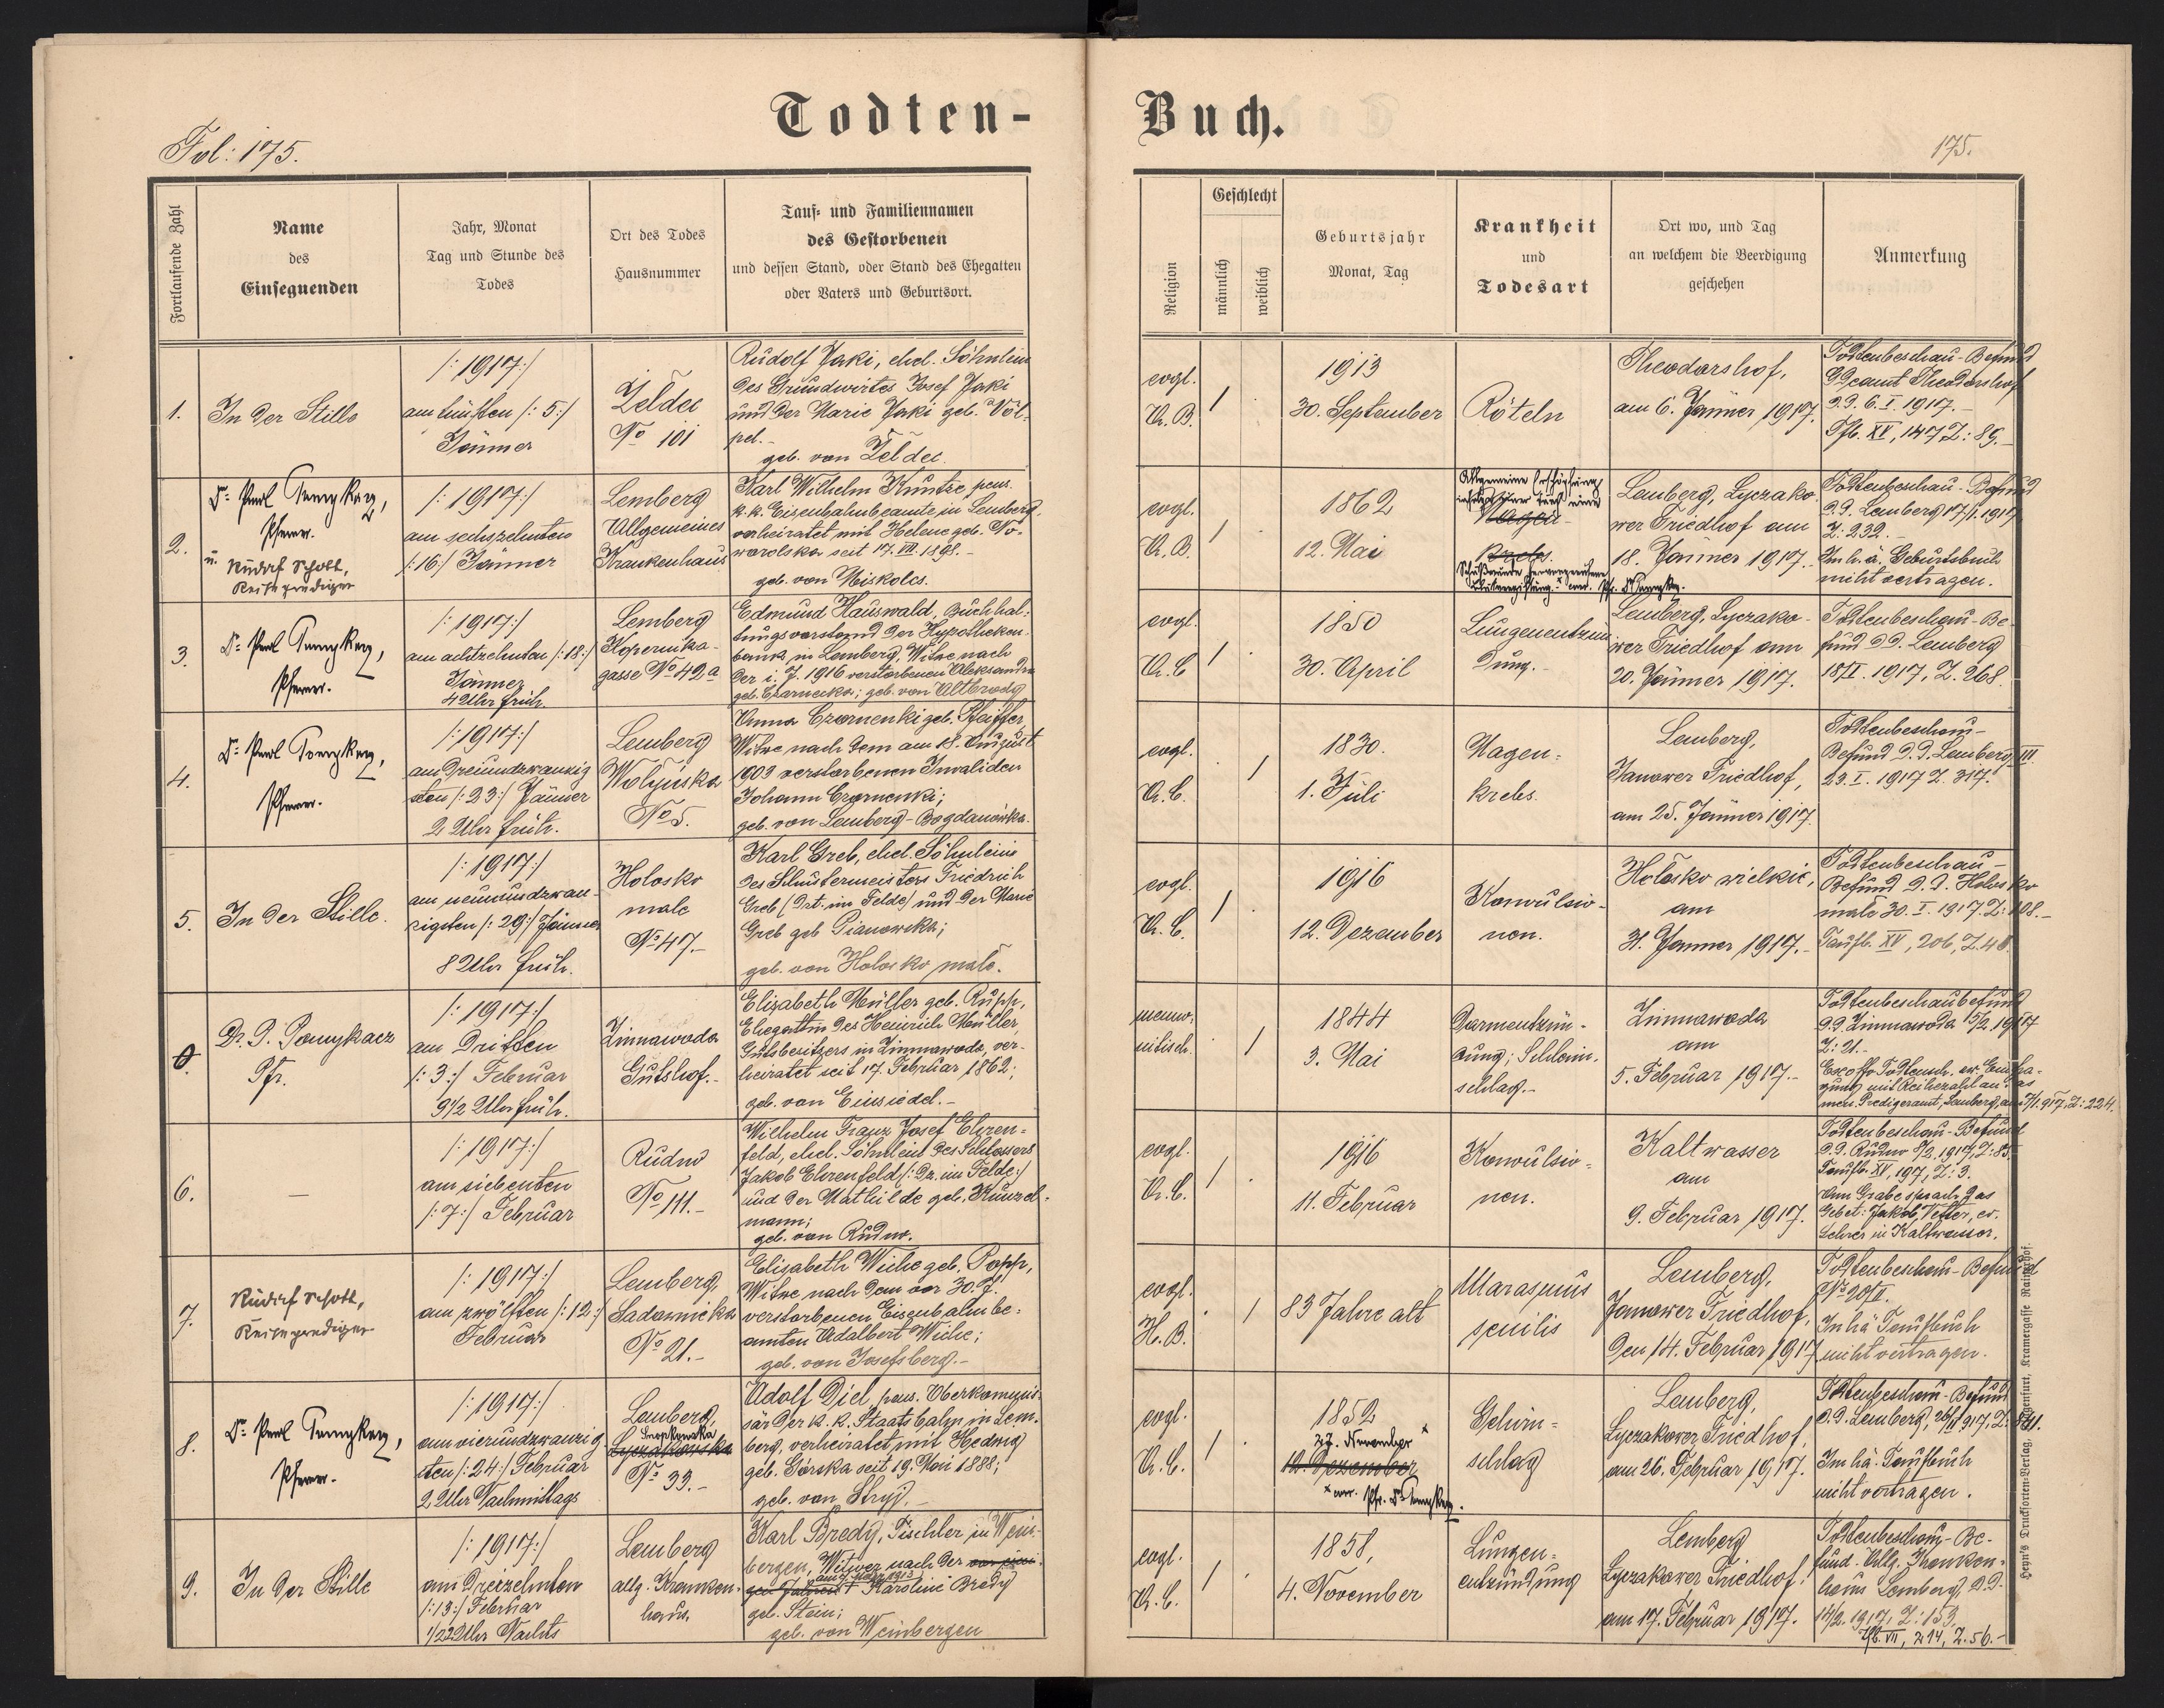 Todten-
Buch.
Fol: 175.
175.
Fortlaufende Zahl
Name
des
Einsegnenden
Jahr, Monat
Tag und Stunde des
Todes
Ort des Todes
Hausnummer
Tauf- und Familiennamen
des Gestorbenen
und dessen Stand, oder Stand des Ehegatten
oder Vaters und Geburtsort.
Religion
Geschlecht
männlich
weiblich
Geburtsjahr
Monat, Tag
Krankheit
und
Todesart
Ort wo, und Tag
an welchem die Beerdigung
geschehen
Anmerkung
1.
In der Stille
/: 1917:/
am fünften /: 5:/
Jänner
Zeldec
No 101
Rudolf Jaki, ehel. Söhnlein
des Grundwirtes Josef Jaki
und der Marie Jaki geb. Völ-
pel.-
geb. von Zeldec.
evgl.
A. B.
/
1913
30. September
Röteln
Theodorshof,
am 6. Jänner 1917.
Todtenbeschau-Befund
Gdeamt Theodorshof
d.d. 6. I. 1917.-
Tfb. XV, 147 Z: 89.-
2.
Pfarrer.
u. Rudolf Scholl,
Reiseprediger
/: 1917:/
am sechszehnten
/:16:/ Jänner
Lemberg
Allgemeines
Krankenhaus
Karl Wilhelm Kuntze, pens.
k. k. Eisenbahnbeamte in Lemberg,
verheiratet mit Helene geb. No-
warolska seit 17. VII. 1898.-
geb. von Miskolcs.
evgl.
A. B.
/
1862
12. Mai
Allgemeine Erschöpfung
infolge
Magen-
krebs.
Lemberg, Lyczako-
wer Friedhof am
18. Jänner 1917.
Todtenbeschau-Befund
d.d. Lemberg 17/1. 1917
Z: 232.-
Im h. ä. Geburtsbuch
nicht vertragen.
3.
Pfarrer.
/: 1917:/
am achtzehnten /:18:/
Jänner
4 Uhr früh.
Lemberg
Kopernika-
gasse No 42a
Edmund Hauswald, Buchhal-
tungsvorstand der Hypotheken-
bank in Lemberg, Witwe nach
der i. J. 1916 verstorbenen Aleksandra
geb. Czarnecka; geb. von Altbrody
evgl.
A. C
/
1850
30. April
Lungenentzün-
dung.-
Lemberg, Lyczako-
wer Friedhof am
20. Jänner 1917.
Todtenbeschau-Be-
fund d.d. Lemberg
18/I. 1917, Z. 268.
4.
Pfarrer.
/:1917:/
am dreiundzwanzig
sten /: 23:/ Jänner
2 Uhr früh.
Lemberg
Wolynska
No 5.
Anna Czornenki geb. Pfeiffer,
Witwe nach dem am 18. August
1909 verstorbenen Invaliden
Johann Czornenki;
geb. von Lemberg-Bogdanówka.
evgl.
A. C.
/
1830.
1. Juli
Magen-
krebs.
Lemberg,
Janower Friedhof,
am 25. Jänner 1917.
Todtenbeschau-
Befund d.d. Lemberg III
23. I. 1917 Z. 317.
5.
In der Stille.
/: 1917:/
am neunundzwan-
zigsten /: 29:/ Jänner
8 Uhr früh.
Holosko
male
No 47.-
Karl Greb, ehel. Söhnlein
des Schustermeisters Friedrich
Greb (Drt. im Felde) und der Marie
Greb geb. Pianowska;
geb. von Holosko małe.
evgl.
A. C.
/
1916
12. Dezember
Konvulsio-
nen.
Holosko wielkie,
am
31. Jänner 1917.-
Todtenbeschau-
Befund d.d. Holosko
małe 30. I. 1917. Z: 108.-
Taufb. XV, 206, Z. 48.
0.
Dr. P. Pomykacz
Pfr.
/: 1917:/
am dritten
/: 3:/ Februar
9 1/2 Uhr früh.
Zimnawoda
Gutshof.-
Elizabeth Müller geb. Rupp,
Ehegattin des Heinrich Müller,
Gutsbesitzers in Zimnawoda, ver-
heiratet seit 17. Februar 1862;
geb. von Einsiedel.-
menno-
nitisch.
/
1844
3. Mai
Darmentzün-
dung; Schleim-
schlag.-
Zimnawoda
am
5. Februar 1917.-
Todtenbeschaubefund
d.d. Zimnawoda 5/2. 1917
Z: 21.-
6.
-
/: 1917:/
am siebenten
/: 7:/ Februar
Rudno
No 111.-
Wilhelm Franz Josef Ehren-
feld, ehel. Söhnlein des Schlossers
Jakob Ehrenfeld /: Dz. im Felde:/
und der Mathilde geb. Künzel-
mann;
geb. von Rudno.
evgl.
A. C.
/
1916
11. Februar
Konvulsio-
nen.
Kaltwasser
am
9. Februar 1917.
Todtenbeschau-Befund
d.d. Rudno 8/2. 1917, Z: 85.
Taufb. XV, 197, Z: 3.
Am Grabe sprach das
Gebet: Jakob Vetter, ev.
Lehrer in Kaltwasser.
7.
Rudolf Scholl,
Reiseprediger
/: 1917:/
am zwölften /: 12:/
Februar
Lemberg,
Sadownicka
No 21.-
Elisabeth Wiche geb. Popp,
Witwe nach dem vor 30. J.
verstorbenen Eisenbahnbe-
amten Adalbert Wiche;
geb. von Josefsberg.-
evgl.
H. B.
/
83 Jahre alt
Marasmus
senilis
Lemberg,
Janower Friedhof,
den 14. Februar 1917
Todtenbeschau-Befund
In hä Taufbuch
nicht vertragen.
8.
Pfarrer.
/: 1917:/
am vierundzwanzig
sten /: 24:/ Februar
2 Uhr Nachmittags
Lemberg,
Snopkowska
Lyczakowska
No 33.-
Adolf Diel, pens. Oberkommis-
sär der k. k. Staatsbahn in Lem-
berg, verheiratet mit Hedwig
geb. Górska seit 19. Mai 1888;
geb. von Stryj.-
evgl.
A. C.
/
1852
27. November
12. Dezember
Gehirn-
schlag
Lemberg,
Lyczakower Friedhof,
am 26. Februar 1917.
Todtenbeschau-Befund
d.d. Lemberg, 26/II 1917, Z. 841.
Im hä. Taufbuch
nicht vertragen.
9.
In der Stille
/: 1917:/
am dreizehnten
/:13:/ Februar
1/2 2 Uhr Nachts
Lemberg
allg. Kranken-
haus.
Karl Bredy, Tischler in Wein-
bergen, Witwer nach der
† Karoline Bredy
geb. Stein;
geb. von Weinbergen
evgl.
A. C.
/
1858,
4. November
Lungen-
entzündung
Lemberg
Lyczakower Friedhof;
am 17. Februar 1917.
Todtenbeschau-Be-
fund-Allg. Kranken-
haus Lemberg, d.d.
14/2. 1917, Z: 153.
Tfb. VII, 214, Z. 56.-